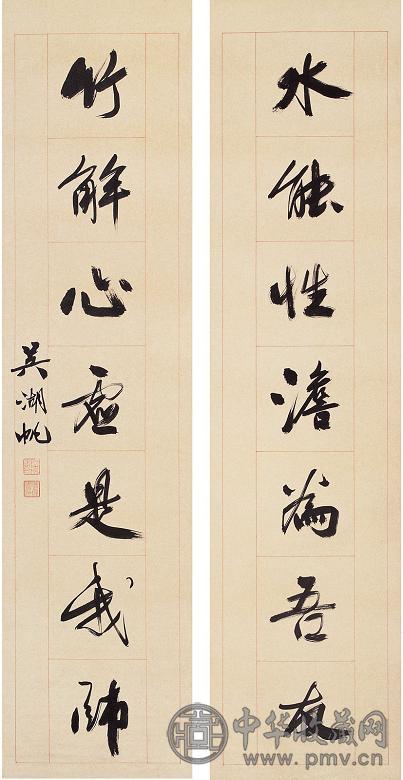 水能性澹為吾友
竹解心虛是我師
吴湖帆
中华收藏网
www.pmv.cn